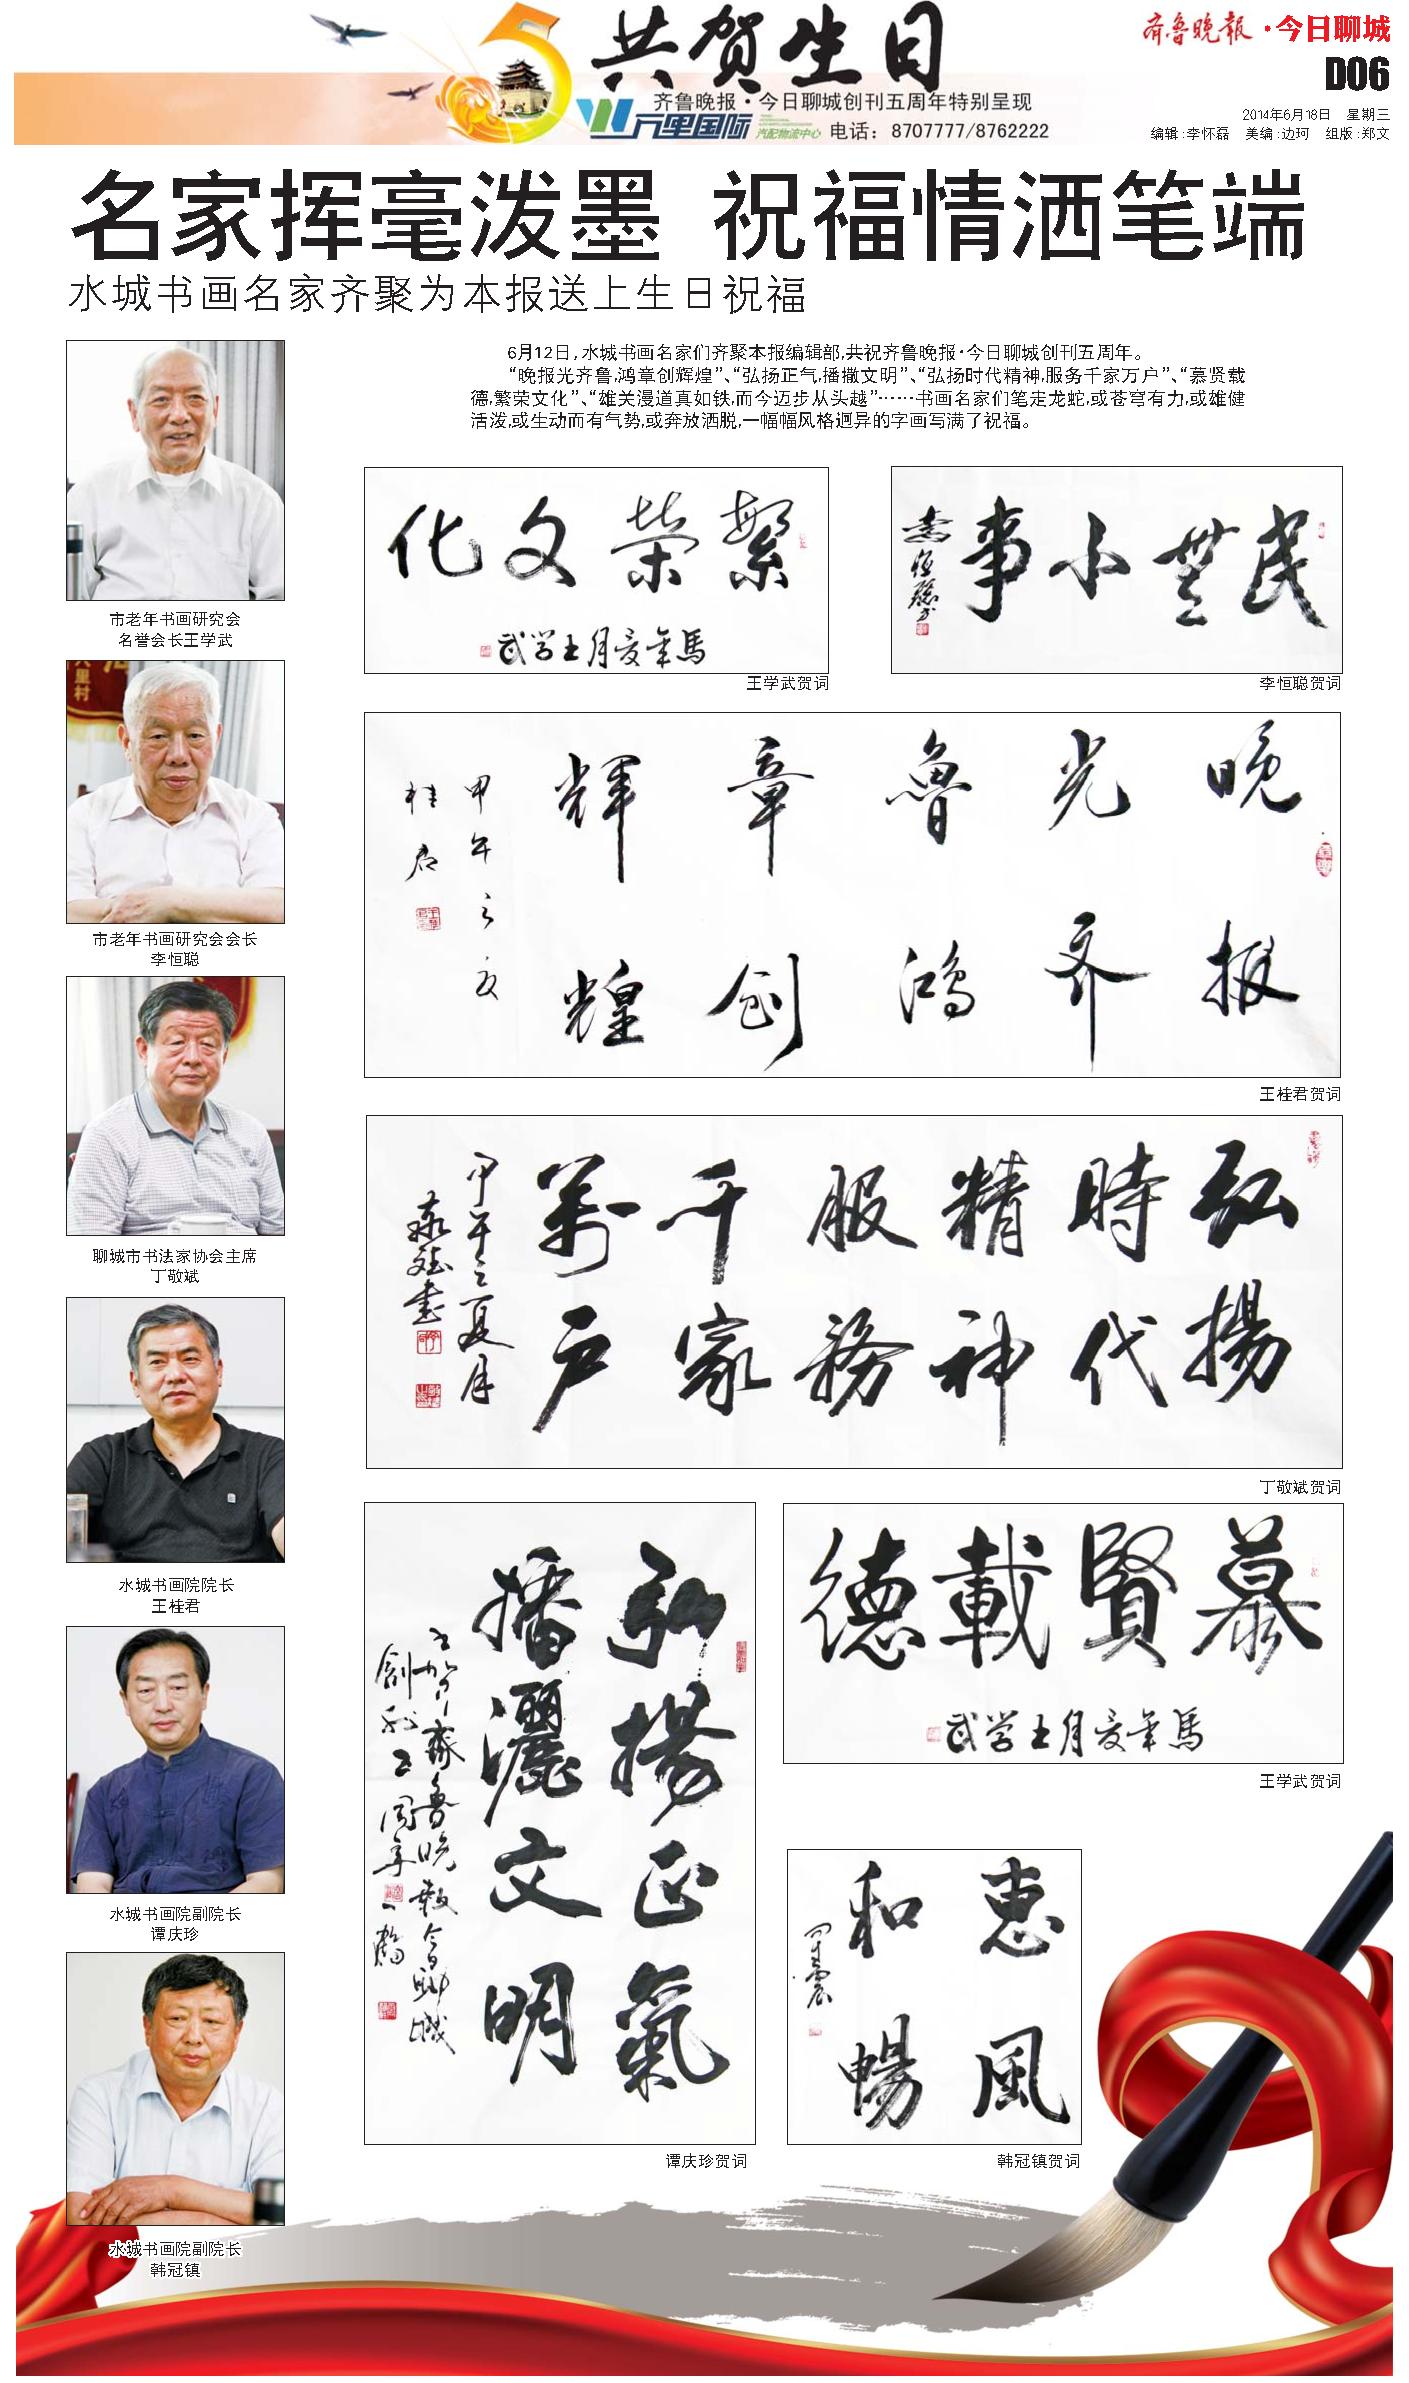 共贺生日
齐鲁晚报·今日聊城创刊五周年特别呈现
万里国际 汽配物流中心 电话：8707777/8762222
齐鲁晚报·今日聊城
D06
2014年6月18日 星期三
编辑:李怀磊 美编:边珂 组版:郑文
名家挥毫泼墨 祝福情洒笔端
水城书画名家齐聚为本报送上生日祝福
6月12日,水城书画名家们齐聚本报编辑部,共祝齐鲁晚报·今日聊城创刊五周年。
“晚报光齐鲁,鸿章创辉煌”、“弘扬正气,播撒文明”、“弘扬时代精神,服务千家万户”、“慕贤载
德,繁荣文化”、“雄关漫道真如铁,而今迈步从头越”……书画名家们笔走龙蛇,或苍穹有力,或雄健
活泼,或生动而有气势,或奔放洒脱,一幅幅风格迥异的字画写满了祝福。
里村
市老年书画研究会
名誉会长王学武
市老年书画研究会会长
李恒聪
聊城市书法家协会主席
丁敬斌
水城书画院院长
王桂君
水城书画院副院长
谭庆珍
水城书画院副院长
韩冠镇
繁荣文化
馬年夏月王学武
王学武贺词
民无小事
李恒聪贺词
晚报
光齐
魯鸿
章创
輝煌
甲午之夏
桂君
王桂君贺词
弘揚
時代
精神
服務
千家
萬户
甲午之夏月
敬斌書
丁敬斌贺词
弘揚正氣
播灑文明
书贺齊魯晚報今日聊城
創刊五周年
谭庆珍贺词
慕賢載德
馬年夏月王学武
王学武贺词
惠風
和暢
韩冠镇贺词